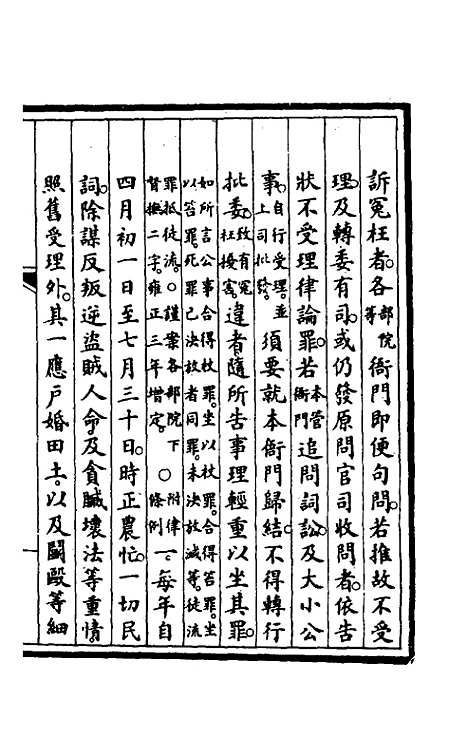 訴冤枉者。各部院等衙門即便句問。若推故不受
理。及轉委有司。或仍發原問官司收問者。依告
狀不受理律論罪。若本管衙門追問詞訟。及大小公
事。自行受理。並上司批發。須要就本衙門歸結。不得轉行
批委。致有冤枉擾害。違者隨所告事理輕重以坐其罪。
如所言公事合得杖罪。坐以杖罪。合得笞罪。坐以笞罪。死罪已決放者同罪。未決放減等。徒流
罪抵徒流。○謹案各部院下督撫二字。雍正三年增定。○附律條例一。每年自
四月初一日至七月三十日。時正農忙。一切民
詞。除謀反叛逆盜賊人命。及貪贓壞法等重情。
照舊受理外。其一應戶婚田土。以及鬬毆等細